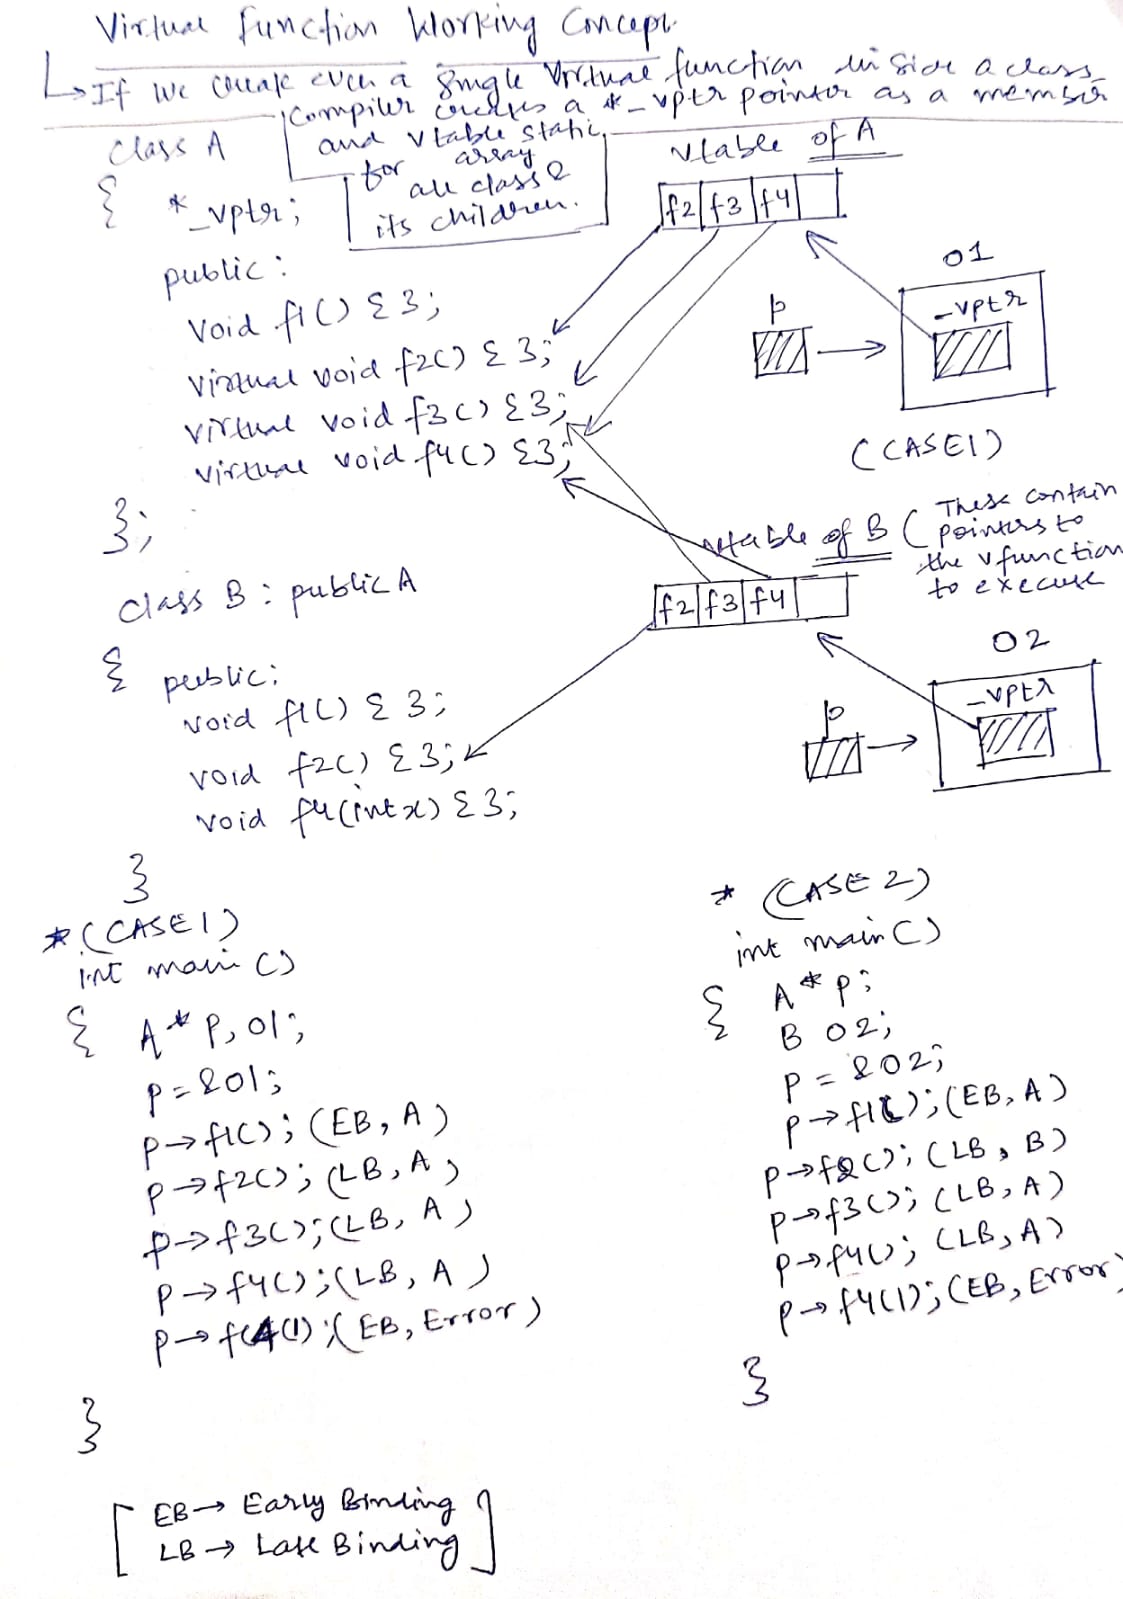 Virtual Function Working Concept
If we create even a single Virtual function inside a class,
Compiler creates a *_vptr pointer as a member
and vtable static
array
for all class &
its children.
class A
{ *_vptr;
public:
void f1() {};
virtual void f2() {};
virtual void f3() {};
virtual void f4() {};
};
vtable of A
f2 f3 f4
p
O1
_vptr
(CASE1)
class B : public A
{ public:
void f1() {};
void f2() {};
void f4(int x) {};
}
vtable of B (These contain
pointers to
the vfunction
to execute
f2 f3 f4
p
O2
_vptr
*(CASE1)
int main()
{ A* p, o1;
p=&o1;
p→f1(); (EB, A)
p→f2(); (LB, A)
p→f3(); (LB, A)
p→f4(); (LB, A)
p→f(4(1); (EB, Error)
}
* (CASE 2)
int main()
{ A* p;
B o2;
p = &o2;
p→f1(); (EB, A)
p→f2(); (LB, B)
p→f3(); (LB, A)
p→f4(); (LB, A)
p→f4(1); (EB, Error)
}
[EB→ Early Binding
LB→ Late Binding]